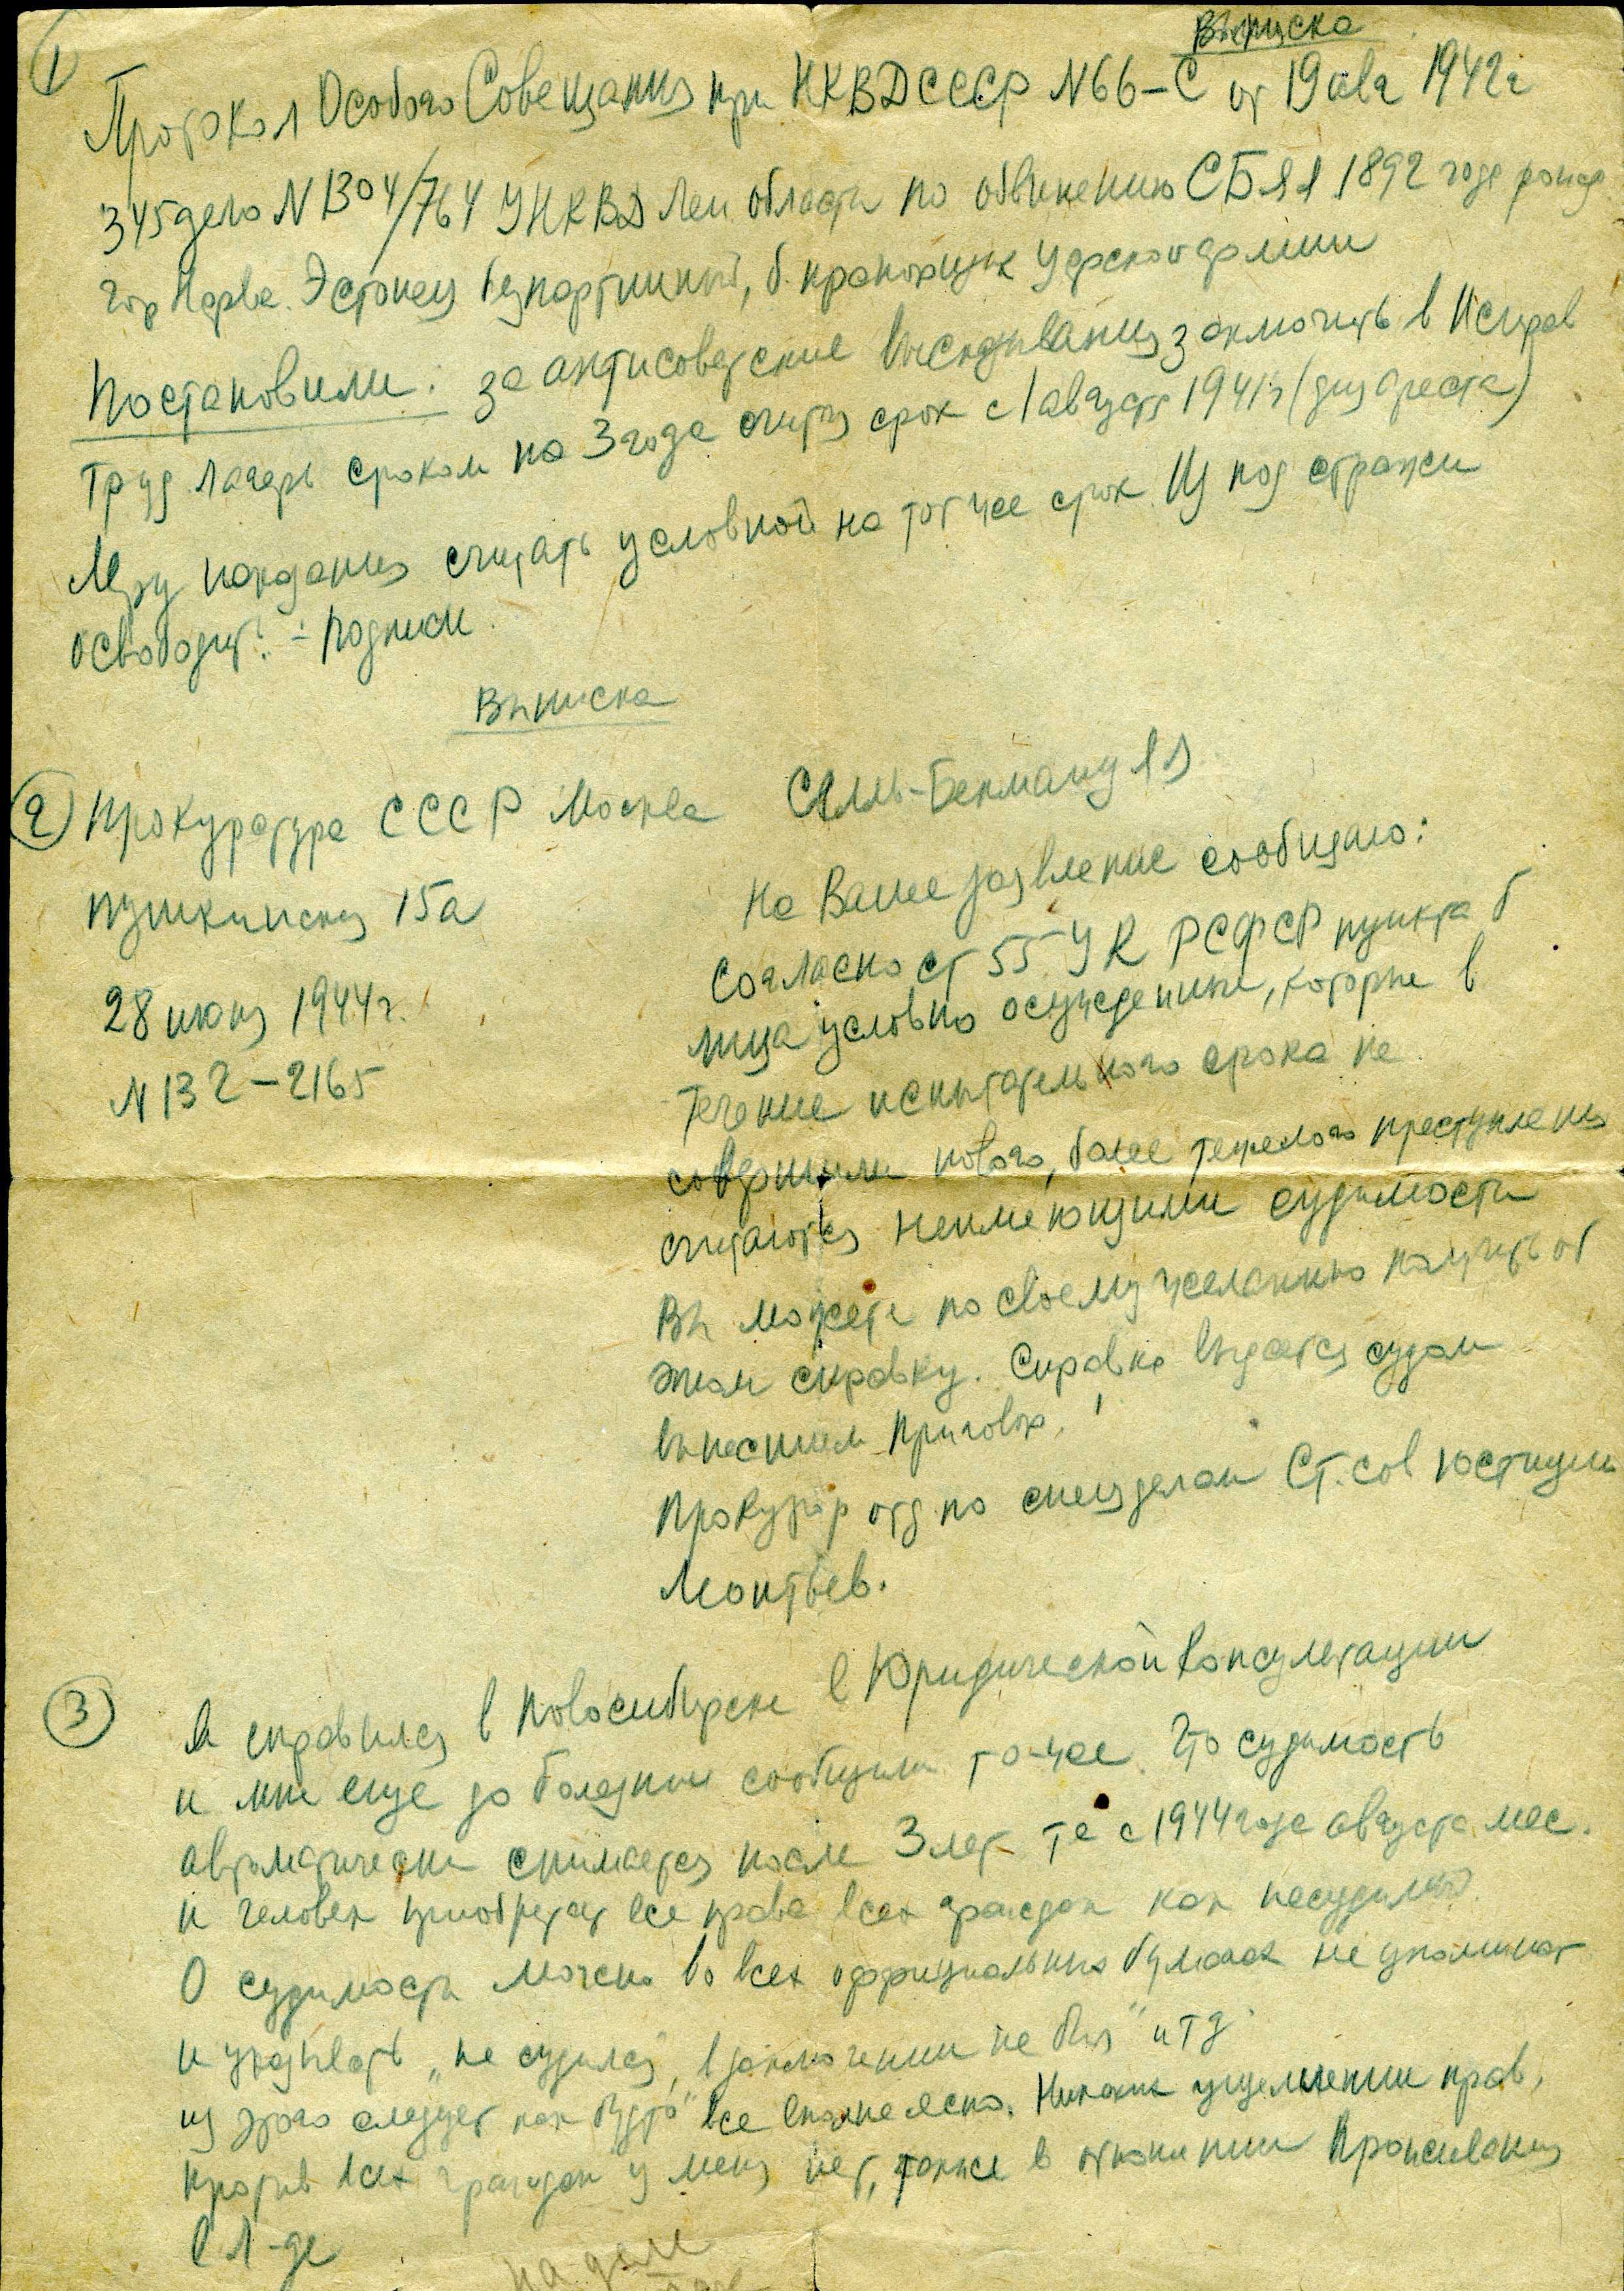 Выписка
1
Протокол Особого Совещания при НКВД СССР N 66-С от 19 авг 1942г
345 дело N 1304/764 УНКВД Лен области по обвинению СБЯЯ 1892 года рожд
гор Нарва. Эстонец беспартийный, б. прапорщик царской армии
Постановили: за антисоветские высказывания заключить в Исправ
Труд лагерь сроком на 3 года считая срок с 1 августа 1941г (дня ареста)
Меру наказания считать условной на тот же срок. Из под стражи
освободить. - Подписи.
Выписка
2
Прокуратура СССР Москва
Пушкинская 15а
28 июня 1944г.
N 132-2165
Сялль-Бекману Я Я
На Ваше заявление сообщаю:
Согласно ст 55 УК РСФСР пункта б
лица условно осужденные, которые в
течение испытательного срока не
совершили нового, более тяжелого преступления
считаются неимеющими судимости
Вы можете по своему желанию получить об
этом справку. Справка выдается судом
вынесшем приговор.
Прокурор отд по спецделам Ст. сов юстиции
Леонтьев.
3
Я справился в Новосибирске в Юридической Консультации
и мне еще до болезни сообщили то-же. Что судимость
автоматически снимается после 3 лет те с 1944 года августа мес.
и человек приобретает все права всех граждан как несудимый.
О судимости можно во всех оффициальных бумагах не упоминат
и указывать „не судился, в заключении не был" и тд
из этого следует как будто все вполне ясно. Никаких ущемлении прав,
против всех граждан у меня нет, также в отношении Проживания
в Л-де
на деле